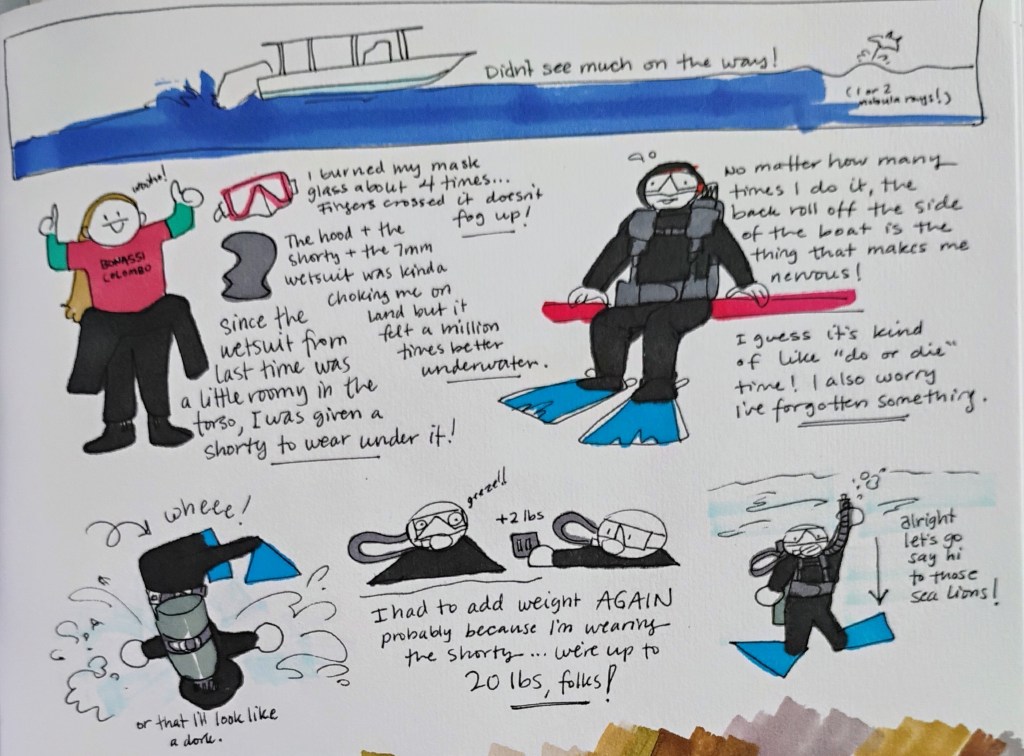 Didn't see much on the way!
(1 or 2
mobula rays!)
wooho!
BONASSI
COLOMBO
I burned my mask
glass about 4 times...
Fingers crossed it doesn't
fog up!
The hood + the
shorty + the 7mm
wetsuit was kinda
choking me on
land but it
felt a million
times better
underwater.
since the
wetsuit from
last time was
a little roomy in the
torso, I was given a
shorty to wear under it!
No matter how many
times I do it, the
back roll off the side
of the boat is the
thing that makes me
nervous!
I guess it's kind
of like "do or die"
time! I also worry
i've forgotten something.
wheee!
or that I'll look like
a dork.
+2 lbs
I had to add weight AGAIN
probably because I'm wearing
the shorty... we're up to
20 lbs, folks!
alright
let's go
say hi
to those
sea lions!